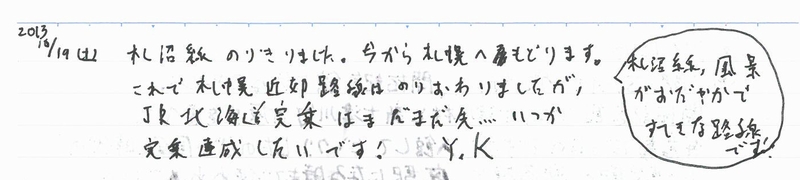 2013
10/19(土)
札沼線 のりきりました。今から札幌へもどります。
これで札幌近郊路線はのりおわりましたが、
JR北海道完乗はまだまだ先… いつか
完乗達成したいです! Y.K
札沼線、風景
がおだやかで
すてきな路線
です!